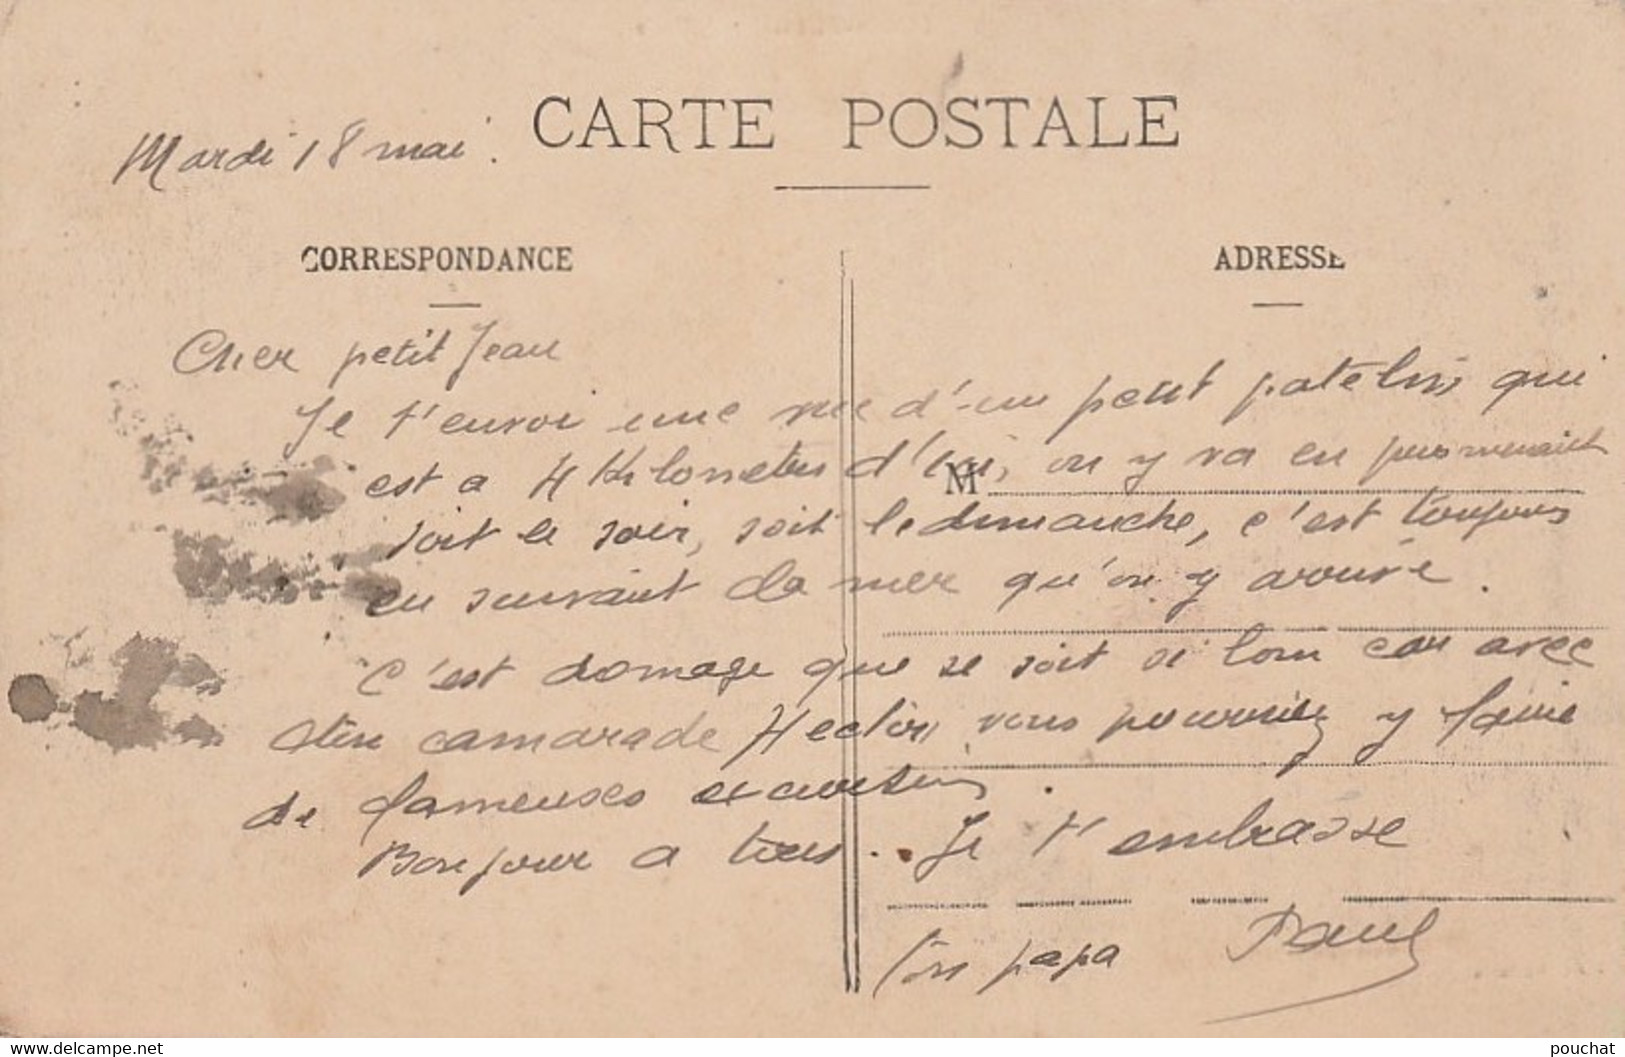 CARTE POSTALE
Mardi 18 mai.
CORRESPONDANCE
ADRESSE
Cher petit Jean
Je t'envoi une vue d'un petit patelin qui
est a 4 Kilometres d'ici, on y va en promenant
M
soit le soir, soit le dimanche, c'est toujours
en suivant la mer qu'on y arrive.
C'est domage que se soit si loin car avec
ton camarade Hector, vous pourriez y faire
de fameuses excursions.
Bonjour a tous. Je t'embrasse
Ton papa Paul
www.delcampe.net
pouchat